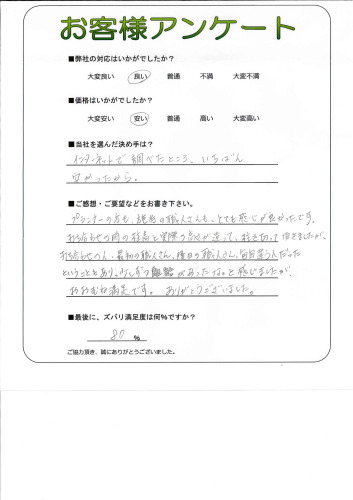 お客様アンケート
■弊社の対応はいかがでしたか？
大変良い 良い 普通 不満 大変不満
■価格はいかがでしたか？
大変安い 安い 普通 高い 大変高い
■当社を選んだ決め手は？
インターネットで調べたところ、いちばん
安かったから。
■ご感想・ご要望などをお書き下さい。
プランナーの方も、現場の職人さんも、とても感じが良かったです。
打ち合わせの時の 実際の が違って、
打ち合わせの人、最初の職人さん、 の職人さん、毎回違う人だった
ということもあり、少しずつ があったなと感じましたが、
おおむね満足です。ありがとうございました。
■最後に、ズバリ満足度は何%ですか？
80 %
ご協力頂き、誠にありがとうございました。